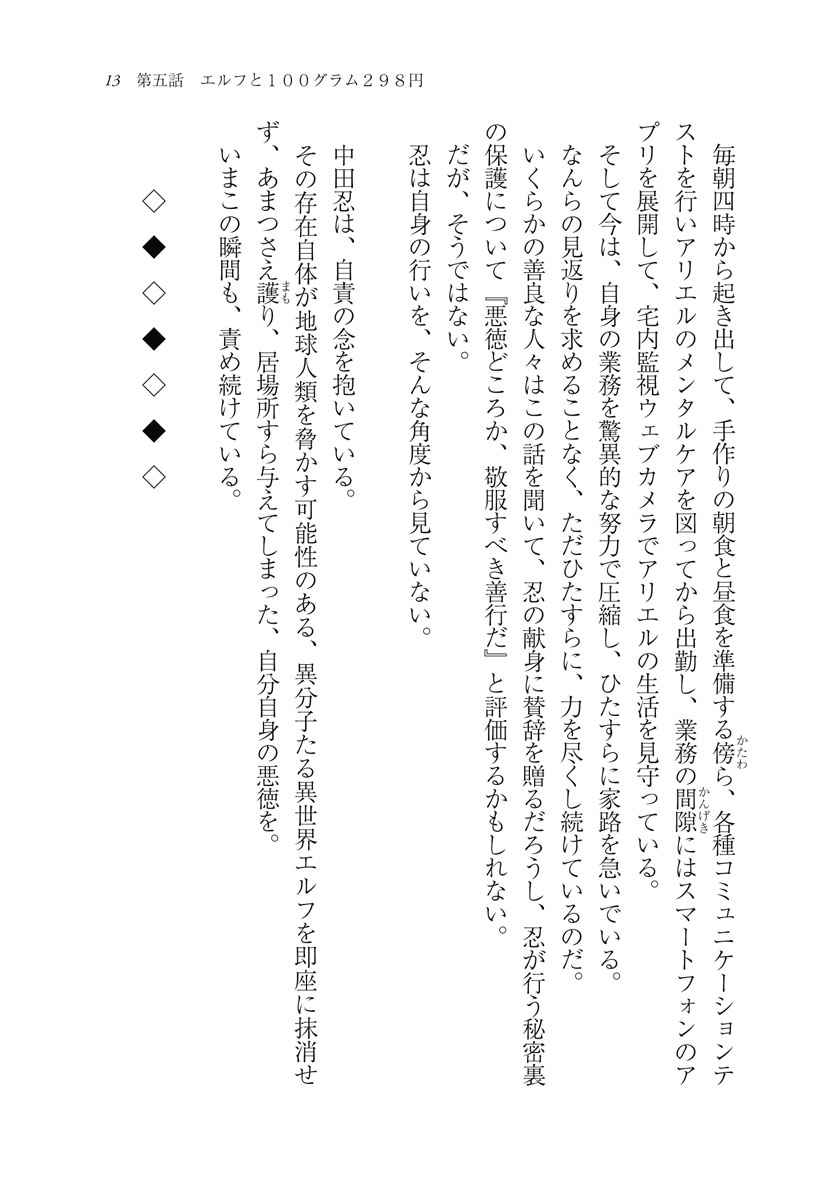 13　第五話　エルフと１００グラム２９８円
毎朝四時から起き出して、手作りの朝食と昼食を準備する傍ら、各種コミュニケーションテ
かたわ
ストを行いアリエルのメンタルケアを図ってから出勤し、業務の間隙にはスマートフォンのア
かんげき
プリを展開して、宅内監視ウェブカメラでアリエルの生活を見守っている。
そして今は、自身の業務を驚異的な努力で圧縮し、ひたすらに家路を急いでいる。
なんらの見返りを求めることなく、ただひたすらに、力を尽くし続けているのだ。
いくらかの善良な人々はこの話を聞いて、忍の献身に賛辞を贈るだろうし、忍が行う秘密裏
の保護について『悪徳どころか、敬服すべき善行だ』と評価するかもしれない。
だが、そうではない。
忍は自身の行いを、そんな角度から見ていない。
中田忍は、自責の念を抱いている。
その存在自体が地球人類を脅かす可能性のある、異分子たる異世界エルフを即座に抹消せ
ず、あまつさえ護り、居場所すら与えてしまった、自分自身の悪徳を。
まも
いまこの瞬間も、責め続けている。
◇◆◇◆◇◆◇